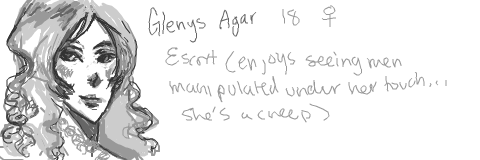 Glenys Agar 18 ♀
Escort (enjoys seeing men
manipulated under her touch...
she's a creep)